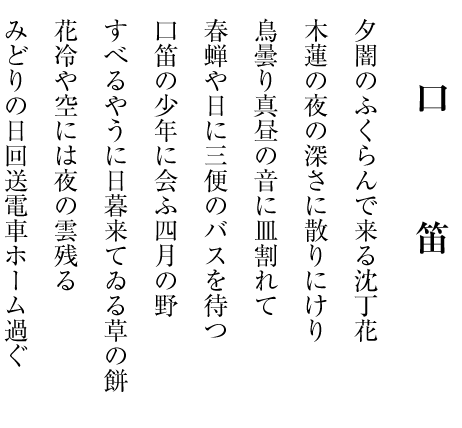 口笛
夕闇のふくらんで来る沈丁花
木蓮の夜の深さに散りにけり
鳥曇り真昼の音に皿割れて
春蝉や日に三便のバスを待つ
口笛の少年に会ふ四月の野
すべるやうに日暮来てゐる草の餅
花冷や空には夜の雲残る
みどりの日回送電車ホーム過ぐ